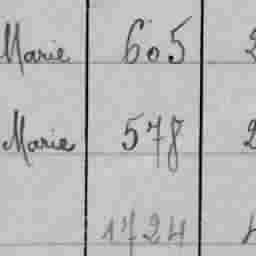 Marie 605 2
Marie 578 2
1724